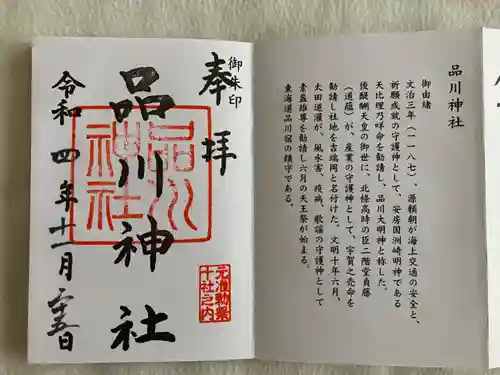 御朱印
奉拝
品川神社
品川
神社
元准勅祭
十社之内
令和四年十一月二十五日
品川神社
御由緒
文治三年(一一八七)、源頼朝が海上交通の安全と、
祈願成就の守護神として、安房国洲崎明神である
天比理乃咩命を勧請し、品川大明神と称した。
後醍醐天皇の御世に、北條高時の臣二階堂貞藤
(道蘊)が、産業の守護神として、宇賀之売命を
勧請し社地を吉端岡と名付けた。文明十年六月、
太田道灌が、風水害、疫病、歌謡の守護神として
素盞雄尊を勧請し六月の天王祭が始まる。
東海道品川宿の鎮守である。